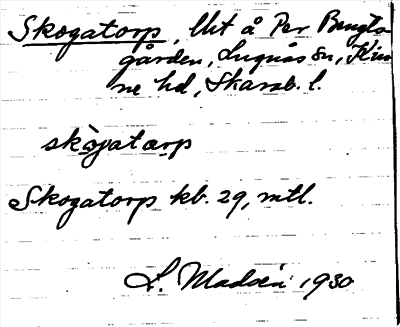 Skogatorp, lht å Per Bengts
gården, Lugnås sn, Kin
ne hd, Skarab. l.
skògatarp
Skogatorp kb. 29, mtl.
L. Madsén 1930